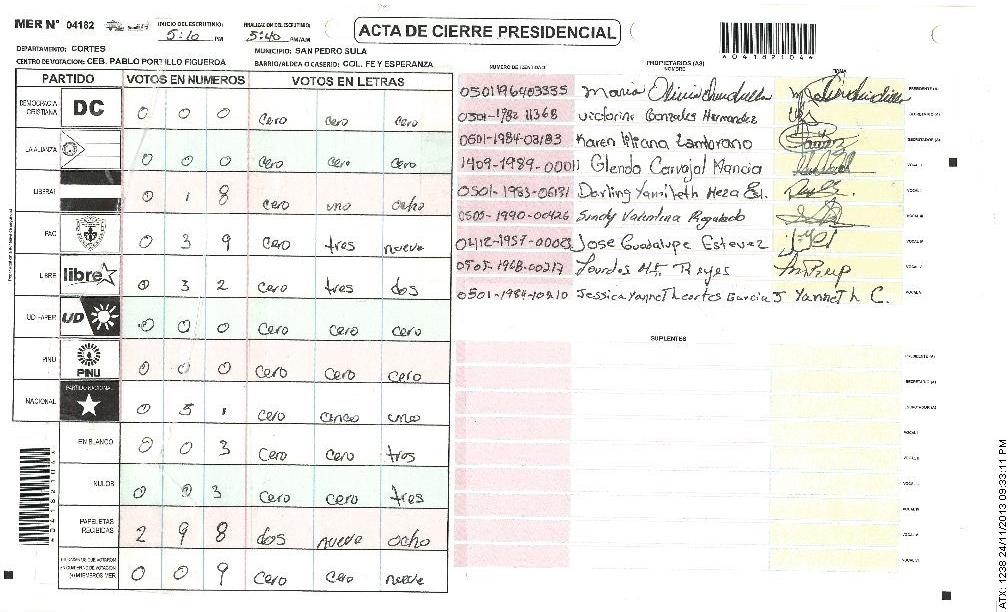 MER N° 04182 INICIO DEL ESCRUTINIO: 5:10 PM FINALIZACION DEL ESCRUTINIO: 5:40 PM/AM
ACTA DE CIERRE PRESIDENCIAL
*04182104*
DEPARTAMENTO: CORTES MUNICIPIO: SAN PEDRO SULA
CENTRO DE VOTACION: CEB. PABLO PORTILLO FIGUEROA BARRIO/ALDEA O CASERIO: COL. FE Y ESPERANZA
PARTIDO VOTOS EN NUMEROS VOTOS EN LETRAS
DEMOCRACIA CRISTIANA DC 0 0 0 cero cero cero
LA ALIANZA 0 0 0 cero cero cero
LIBERAL 0 1 8 cero uno ocho
PAC 0 3 9 cero tres nueve
LIBRE libre 0 3 2 cero tres dos
UD-FAPER UD 0 0 0 cero cero cero
PINU PINU 0 0 0 cero cero cero
NACIONAL PARTIDO NACIONAL 0 5 1 cero cinco uno
EN BLANCO 0 0 3 cero cero tres
NULOS 0 0 3 cero cero tres
PAPELETAS RECIBIDAS 2 9 8 dos nueve ocho
MIEMBROS MER 0 0 9 cero cero nueve
NUMERO DE IDENTIDAD PROPIETARIOS (AS) NOMBRE FIRMA
0501196403335 Maria Olivia PRESIDENTE (A)
0501-1982 11368 Victorina Gonzales Hernandez SECRETARIO (A)
0501-1984-03183 Karen Zambrano ESCRUTADOR (A)
1409-1989-00011 Glenda Carvajal Mancia VOCAL I
0501-1983-06131 Darling Yamileth Meza VOCAL II
0505-1990-00426 Sindy Valentina Regalado VOCAL III
0412-1957-00003 Jose Guadalupe Estevez VOCAL IV
0505-1968-00217 Lourdes Reyes VOCAL V
0501-1984-10210 Jessica Yanneth cortes Garcia J Yanneth C. VOCAL VI
SUPLENTES
PRESIDENTE (A)
SECRETARIO (A)
ESCRUTADOR (A)
VOCAL I
VOCAL II
VOCAL III
VOCAL IV
VOCAL V
VOCAL VI
*04182104*
ATX: 1238 24/11/2013 09:33:11 PM